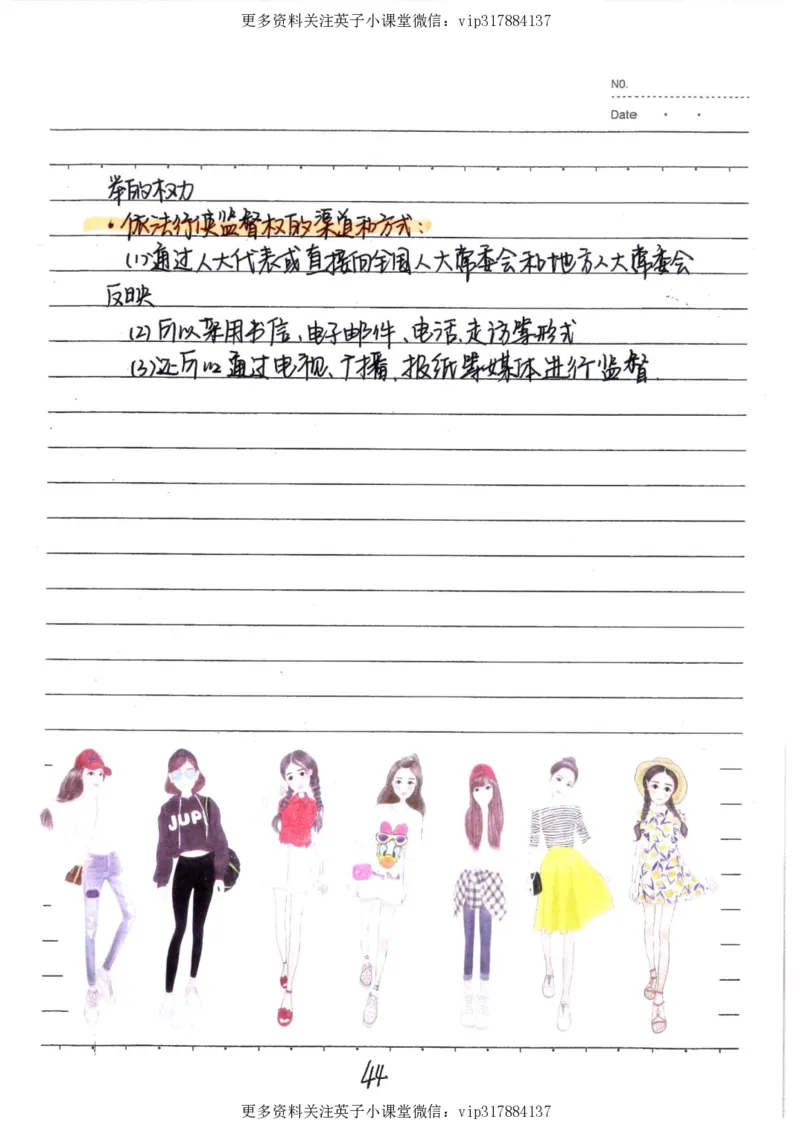 更多资料关注英子小课堂微信：vip317884137
NO.
Date
举的权力
·依法行使监督权的渠道和方式：
(1)通过人大代表或直接向全国人大常委会和地方人大常委会
反映
(2)可以采用书信、电子邮件、电话、走访等形式
(3)还可以通过电视、广播、报纸等媒体进行监督.
JUP
44
更多资料关注英子小课堂微信：vip317884137